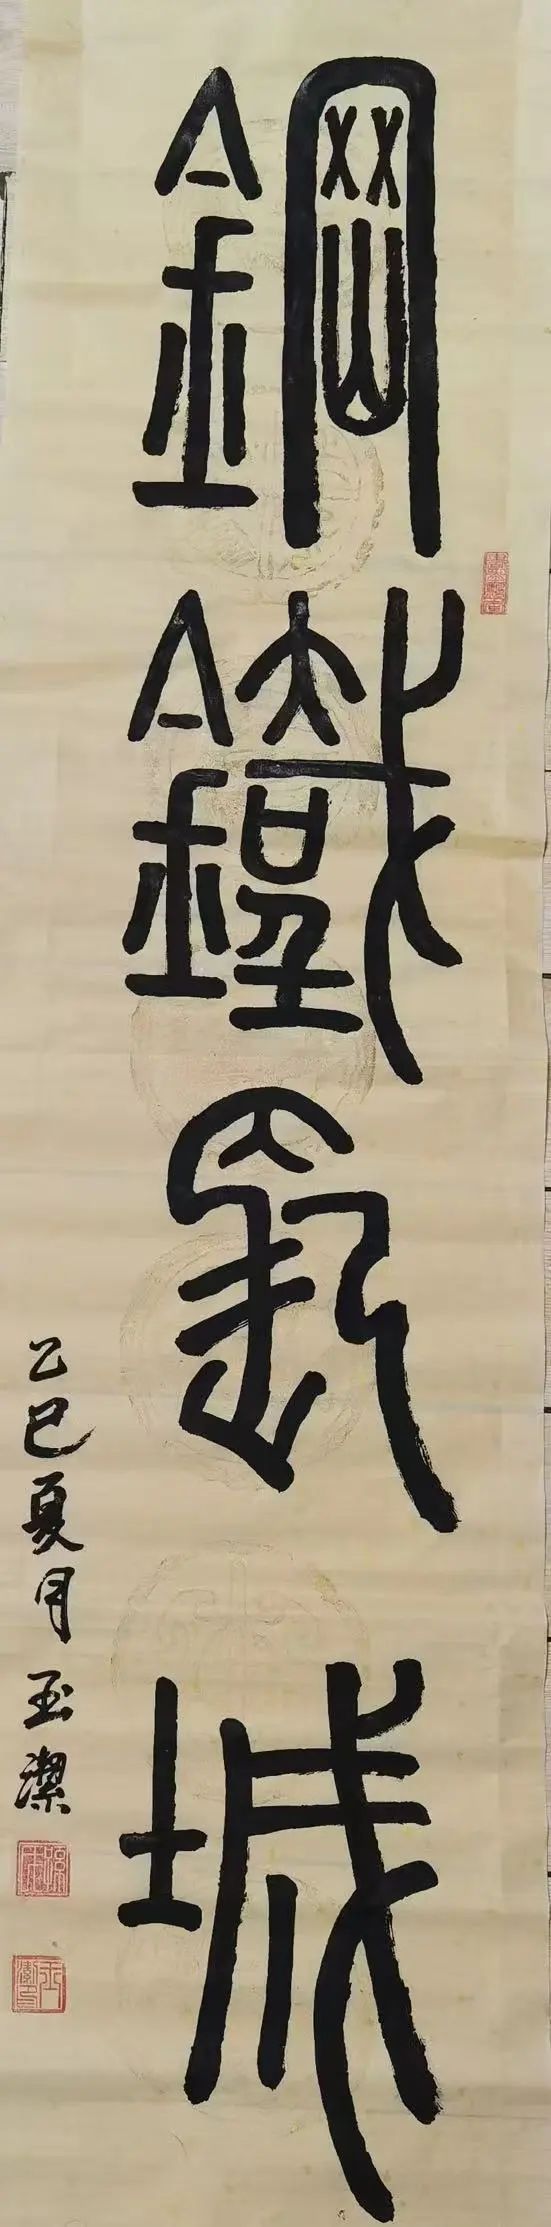 鋼鐵長城
乙巳夏月玉潔